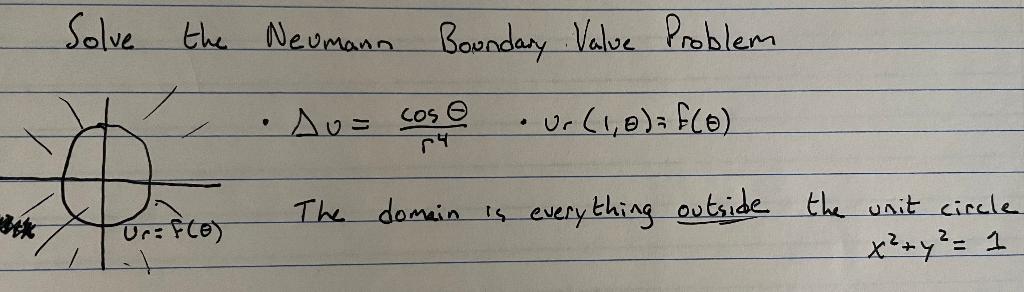 Solve the Neumann Boundary Value Problem
• Δu = cos θ / r⁴ • ur (1,θ) = f(θ)
The domain is everything outside the unit circle
ur = f(θ)
x² + y² = 1